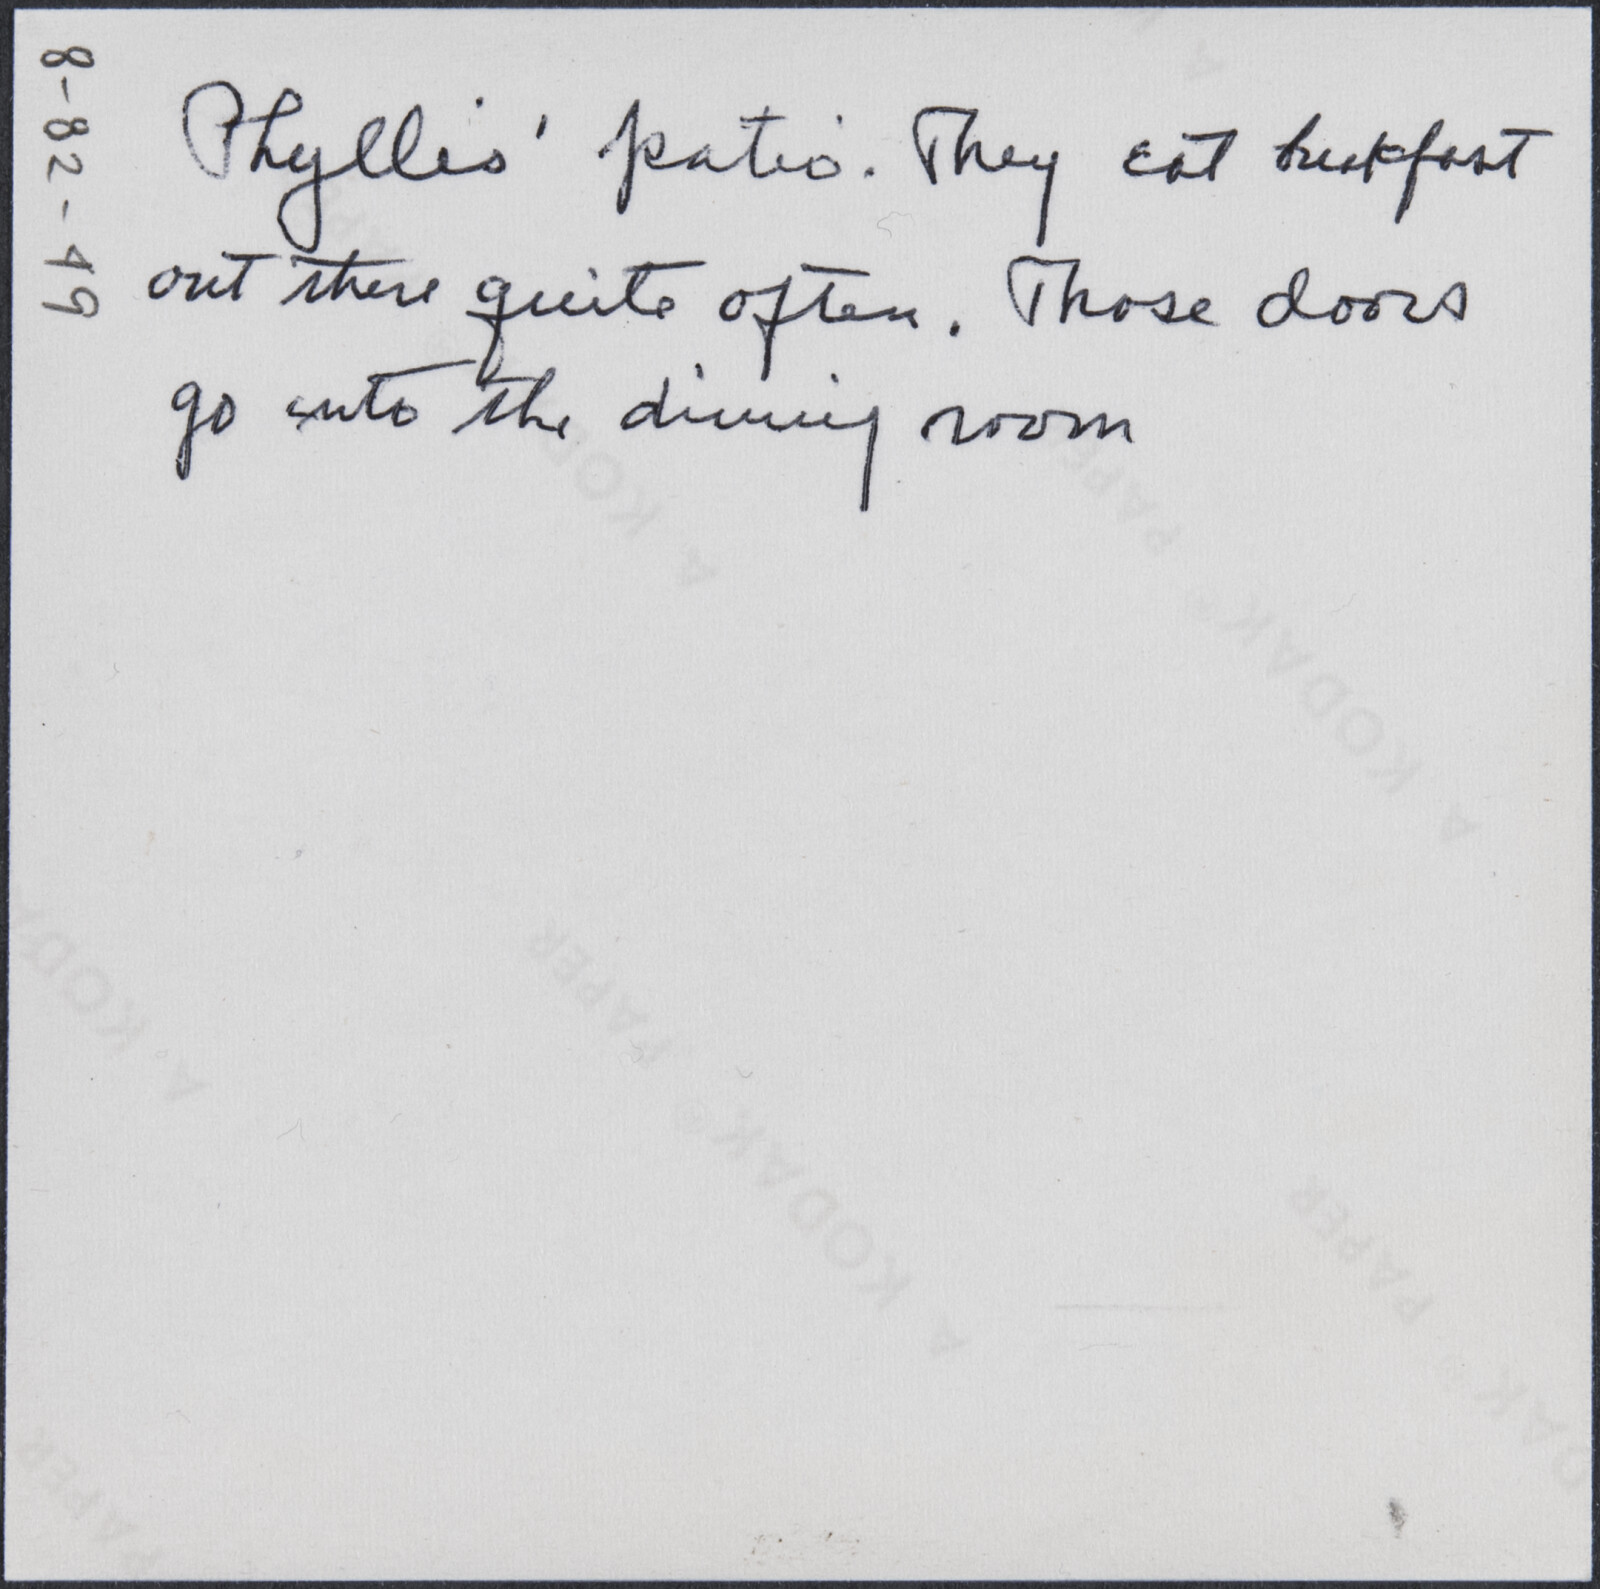 8-82-49
Phyllis' patio. They eat breakfast
out there quite often. Those doors
go into the dining room
A KODAK® PAPER
A KODAK® PAPER
A KODAK® PAPER